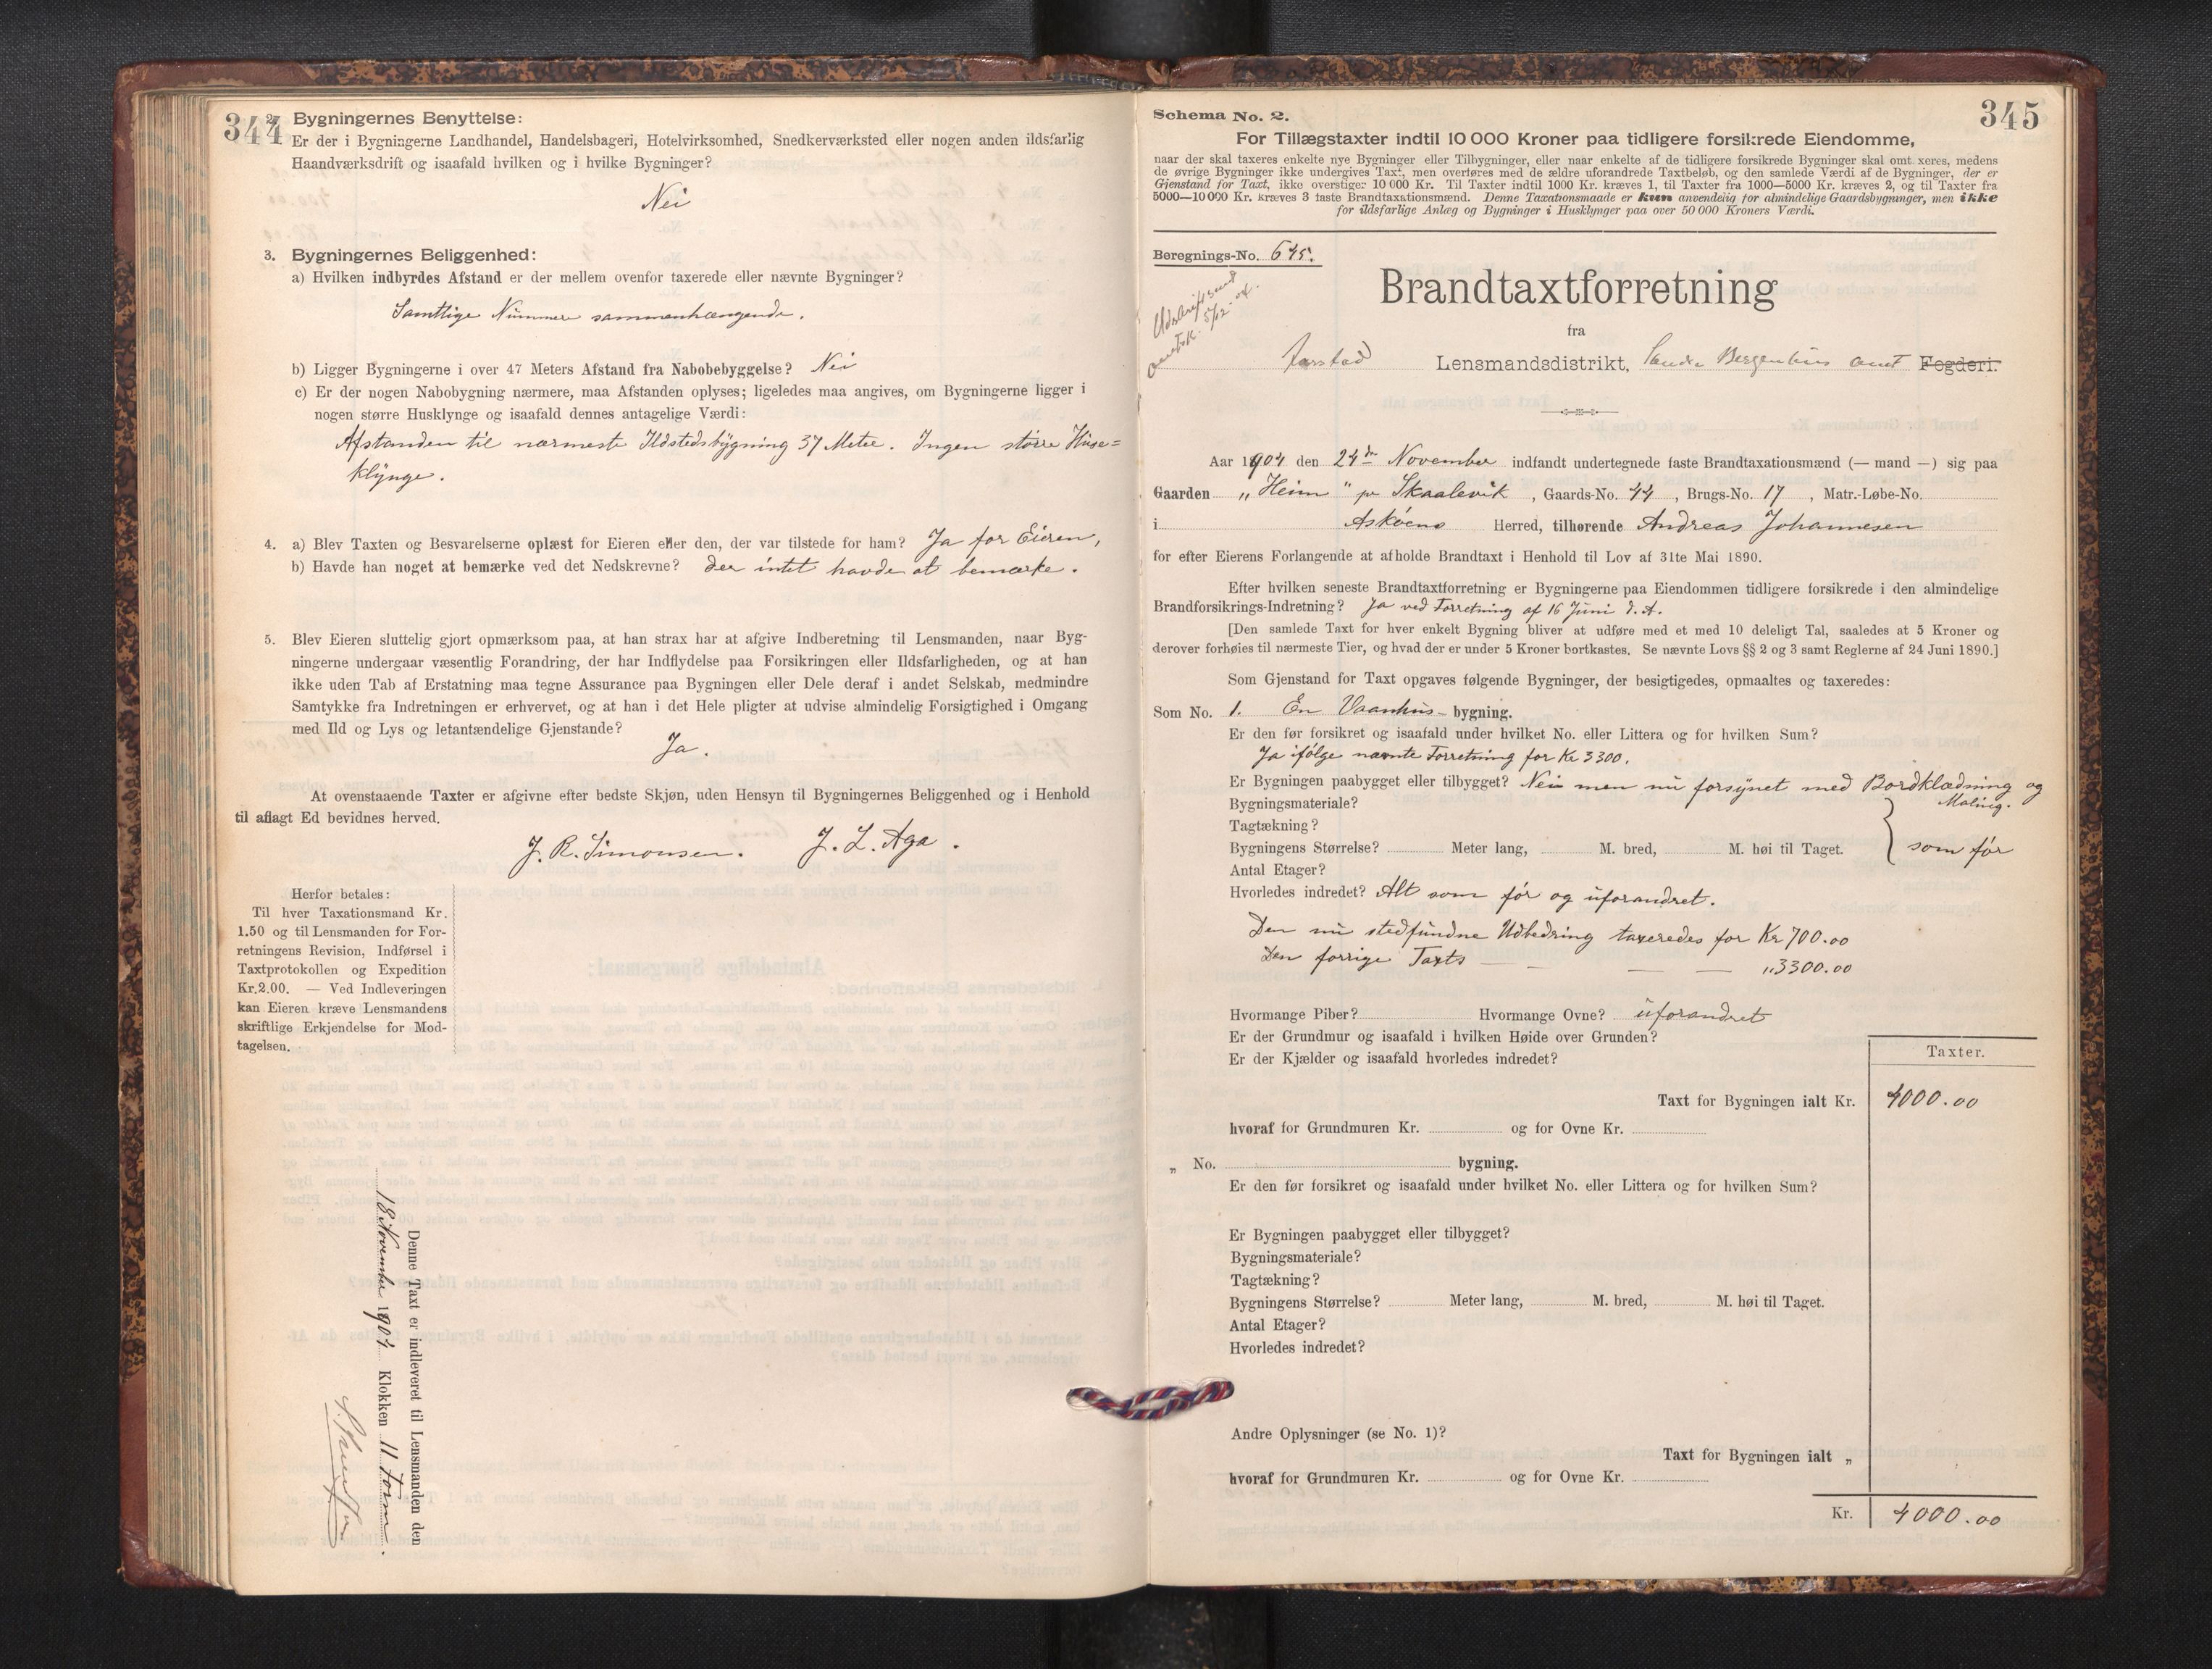 344
2. Bygningernes Benyttelse:
Er der i Bygningerne Landhandel, Handelsbageri, Hotelvirksomhed, Snedkerværksted eller nogen anden ildsfarlig
Haandværksdrift og isaafald hvilken og i hvilke Bygninger?
Nei
3. Bygningernes Beliggenhed:
a) Hvilken indbyrdes Afstand er der mellem ovenfor taxerede eller nævnte Bygninger?
Samtlige Nummere sammenhængende.
b) Ligger Bygningerne i over 47 Meters Afstand fra Nabobebyggelse? Nei
c) Er der nogen Nabobygning nærmere, maa Afstanden oplyses; ligeledes maa angives, om Bygningerne ligger i
nogen større Husklynge og isaafald dennes antagelige Værdi:
Afstanden til nærmeste Ildstedsbygning 37 Meter. Ingen større Huse=
klynge.
4. a) Blev Taxten og Besvarelserne oplæst for Eieren eller den, der var tilstede for ham? Ja for Eieren,
b) Havde han noget at bemærke ved det Nedskrevne? der intet havde at bemærke.
5. Blev Eieren sluttelig gjort opmærksom paa, at han strax har at afgive Indberetning til Lensmanden, naar Byg-
ningerne undergaar væsentlig Forandring, der har Indflydelse paa Forsikringen eller Ildsfarligheden, og at han
ikke uden Tab af Erstatning maa tegne Assurance paa Bygningen eller Dele deraf i andet Selskab, medmindre
Samtykke fra Indretningen er erhvervet, og at han i det Hele pligter at udvise almindelig Forsigtighed i Omgang
med Ild og Lys og letantændelige Gjenstande?
Ja.
At ovenstaaende Taxter er afgivne efter bedste Skjøn, uden Hensyn til Bygningernes Beliggenhed og i Henhold
til aflagt Ed bevidnes herved.
J. R. Simonsen. J. L. Aga.
Herfor betales:
Til hver Taxationsmand Kr.
1.50 og til Lensmanden for For-
retningens Revision, Indførsel i
Taxtprotokollen og Expedition
Kr.2.00. — Ved Indleveringen
kan Eieren kræve Lensmandens
skriftlige Erkjendelse for Mod-
tagelsen.
Denne Taxt er indleveret til Lensmanden den
18 November 1904 Klokken 11 Form.
345
Schema No. 2.
For Tillægstaxter indtil 10 000 Kroner paa tidligere forsikrede Eiendomme,
naar der skal taxeres enkelte nye Bygninger eller Tilbygninger, eller naar enkelte af de tidligere forsikrede Bygninger skal omtaxeres, medens
de øvrige Bygninger ikke undergives Taxt, men overføres med de ældre uforandrede Taxtbeløb, og den samlede Værdi af de Bygninger, der er
Gjenstand for Taxt, ikke overstiger 10 000 Kr. Til Taxter indtil 1000 Kr. kræves 1, til Taxter fra 1000—5000 Kr. kræves 2, og til Taxter fra
5000—10 000 Kr. kræves 3 faste Brandtaxationsmænd. Denne Taxationsmaade er kun anvendelig for almindelige Gaardsbygninger, men ikke
for ildsfarlige Anlæg og Bygninger i Husklynger paa over 50 000 Kroners Værdi.
Beregnings-No. 645.
5/12 04.
Brandtaxtforretning
fra
Aarstad Lensmandsdistrikt, Søndre Bergenhus Amt Fogderi.
Aar 1904 den 24de November indfandt undertegnede faste Brandtaxationsmænd (— mand —) sig paa
Gaarden „Heim" pr Skaalevik, Gaards-No. 44, Brugs-No. 17, Matr.-Løbe-No.
i Askøens Herred, tilhørende Andreas Johannesen
for efter Eierens Forlangende at afholde Brandtaxt i Henhold til Lov af 31te Mai 1890.
Efter hvilken seneste Brandtaxtforretning er Bygningerne paa Eiendommen tidligere forsikrede i den almindelige
Brandforsikrings-Indretning? Ja ved Forretning af 16 Juni d. A.
[Den samlede Taxt for hver enkelt Bygning bliver at udføre med et med 10 deleligt Tal, saaledes at 5 Kroner og
derover forhøies til nærmeste Tier, og hvad der er under 5 Kroner bortkastes. Se nævnte Lovs §§ 2 og 3 samt Reglerne af 24 Juni 1890.]
Som Gjenstand for Taxt opgaves følgende Bygninger, der besigtigedes, opmaaltes og taxeredes:
Som No. 1. En Vaanhus- bygning.
Er den før forsikret og isaafald under hvilket No. eller Littera og for hvilken Sum?
Ja ifølge nævnte Forretning for Kr 3300.
Er Bygningen paabygget eller tilbygget? Nei men nu forsynet med Bordklædning og
Maling.
Bygningsmateriale?
Tagtækning?
Bygningens Størrelse? Meter lang, M. bred, M. høi til Taget. som før
Antal Etager?
Hvorledes indredet? Alt som før og uforandret.
Den nu stedfundne Udbedring taxeredes for Kr 700.00
Den forrige Taxts — — — „ 3300.00
Hvormange Piber? Hvormange Ovne? uforandret
Er der Grundmur og isaafald i hvilken Høide over Grunden?
Er der Kjælder og isaafald hvorledes indredet?
Taxter.
Taxt for Bygningen ialt Kr. 4000.00
hvoraf for Grundmuren Kr. og for Ovne Kr.
„ No. bygning.
Er den før forsikret og isaafald under hvilket No. eller Littera og for hvilken Sum?
Er Bygningen paabygget eller tilbygget?
Bygningsmateriale?
Tagtækning?
Bygningens Størrelse? Meter lang, M. bred, M. høi til Taget.
Antal Etager?
Hvorledes indredet?
Andre Oplysninger (se No. 1)?
Taxt for Bygningen ialt „
hvoraf for Grundmuren Kr. og for Ovne Kr.
Kr. 4000.00